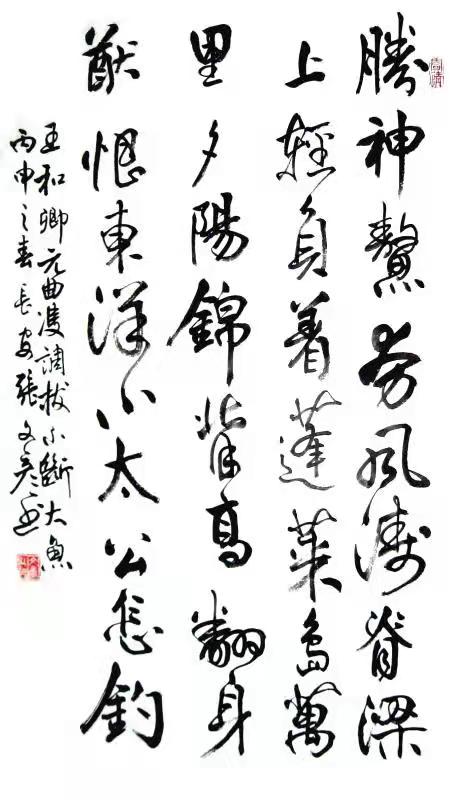 勝神鰲夯風濤脊梁
上輕負着蓬萊島萬
里夕陽錦背高翻身
猷恨東洋小太公怎釣
王和卿元曲雙調拔不斷大魚
丙申之春長安張文彥